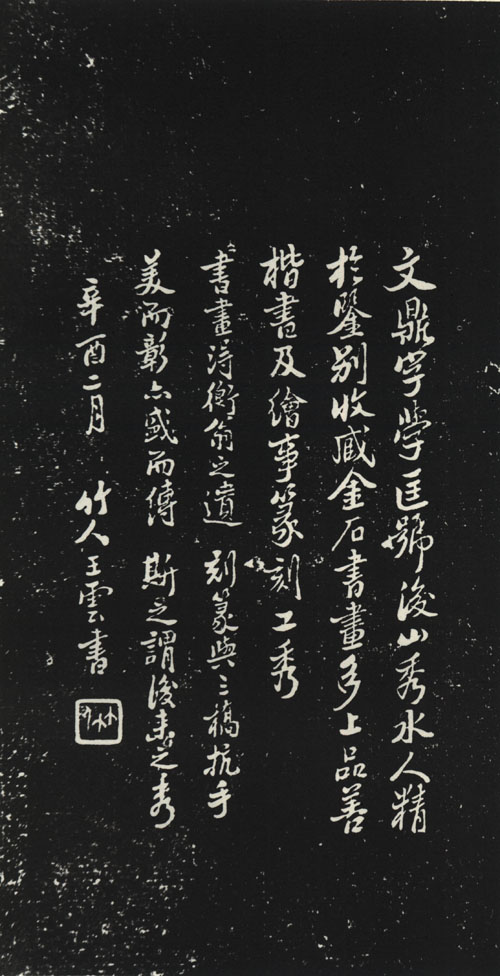 文鼎字學匡號後山秀水人精
於鑒別收臧金石書畫多上品善
楷書及繪事篆刻工秀
書畫浔衡翁之遺 刻篆與三橋抗手
美而彰亦盛而傳 斯之謂後來之秀
辛酉二月 竹人王雲書